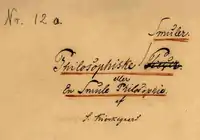 Nr. 12 a.
Smuler.
Philosophiske
eller
En Smule Philosophie
af
S. Kierkegaard